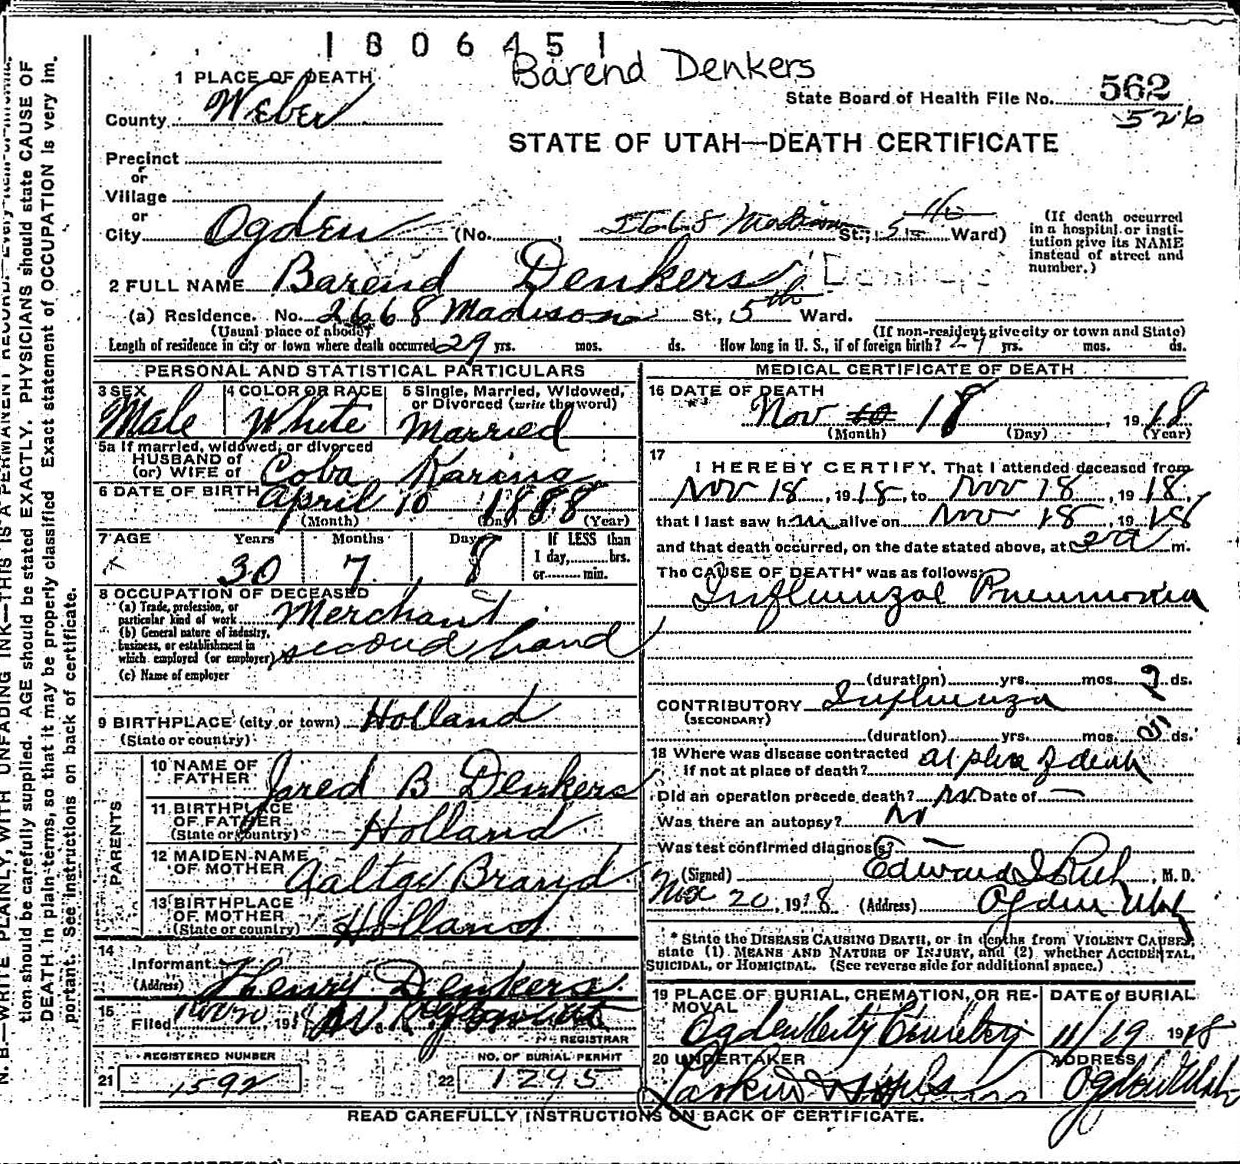 1806451
Barend Denkers
1 PLACE OF DEATH
State Board of Health File No. 562
526
County Weber
STATE OF UTAH—DEATH CERTIFICATE
Precinct
or
Village
or
City Ogden (No. 2668 Madison St.; 5th Ward)
(If death occurred
in a hospital or insti-
tution give its NAME
instead of street and
number.)
2 FULL NAME Barend Denkers Denkers
(a) Residence. No. 2668 Madison St., 5th Ward.
(Usual place of abode) (If non-resident give city or town and State)
Length of residence in city or town where death occurred 29 yrs. mos. ds. How long in U. S., if of foreign birth? 29 yrs. mos. ds.
PERSONAL AND STATISTICAL PARTICULARS
3 SEX Male
4 COLOR OR RACE White
5 Single, Married, Widowed,
or Divorced (write the word)
Married
5a If married, widowed, or divorced
HUSBAND of
(or) WIFE of Coba Karina
6 DATE OF BIRTH April 10 1888
(Month) (Day) (Year)
7 AGE Years Months Days If LESS than
1 day, hrs.
or min.
30 7 8
8 OCCUPATION OF DECEASED
(a) Trade, profession, or
particular kind of work Merchant
(b) General nature of industry,
business, or establishment in
which employed (or employer) second hand
(c) Name of employer
9 BIRTHPLACE (city or town) Holland
(State or country)
PARENTS
10 NAME OF
FATHER Jared B Denkers
11 BIRTHPLACE
OF FATHER
(State or country) Holland
12 MAIDEN NAME
OF MOTHER Aaltge Brand
13 BIRTHPLACE
OF MOTHER
(State or country) Holland
14
Informant Henry Denkers
(Address)
15
Filed Nov 191
REGISTRAR
REGISTERED NUMBER NO. OF BURIAL PERMIT
21 1592 22 1295
MEDICAL CERTIFICATE OF DEATH
16 DATE OF DEATH
Nov 10 18, 1918
(Month) (Day) (Year)
17
I HEREBY CERTIFY, That I attended deceased from
Nov 18, 1918, to Nov 18, 1918
that I last saw him alive on Nov 18, 1918
and that death occurred, on the date stated above, at 2 a m.
The CAUSE OF DEATH* was as follows:
Influenzal Pneumonia
(duration) yrs. mos. 2 ds.
CONTRIBUTORY Influenza
(SECONDARY)
(duration) yrs. mos. 5 ds.
18 Where was disease contracted
if not at place of death? at place of death
Did an operation precede death? No Date of —
Was there an autopsy? No
Was test confirmed diagnosis? —
(Signed) Edward I Rich, M. D.
Nov 20, 1918 (Address) Ogden Utah
* State the DISEASE CAUSING DEATH, or in deaths from VIOLENT CAUSES,
state (1) MEANS AND NATURE OF INJURY, and (2) whether ACCIDENTAL,
SUICIDAL, or HOMICIDAL. (See reverse side for additional space.)
19 PLACE OF BURIAL, CREMATION, OR RE-
MOVAL
Ogden City Cemetery
DATE of BURIAL
11/19 1918
20 UNDERTAKER
Larkin & Sons
ADDRESS
Ogden Utah
READ CAREFULLY INSTRUCTIONS ON BACK OF CERTIFICATE.
N. B.—WRITE PLAINLY, WITH UNFADING INK—THIS IS A PERMANENT RECORD. Every item of informa-
tion should be carefully supplied. AGE should be stated EXACTLY. PHYSICIANS should state CAUSE OF
DEATH in plain terms, so that it may be properly classified. Exact statement of OCCUPATION is very im-
portant. See instructions on back of certificate.